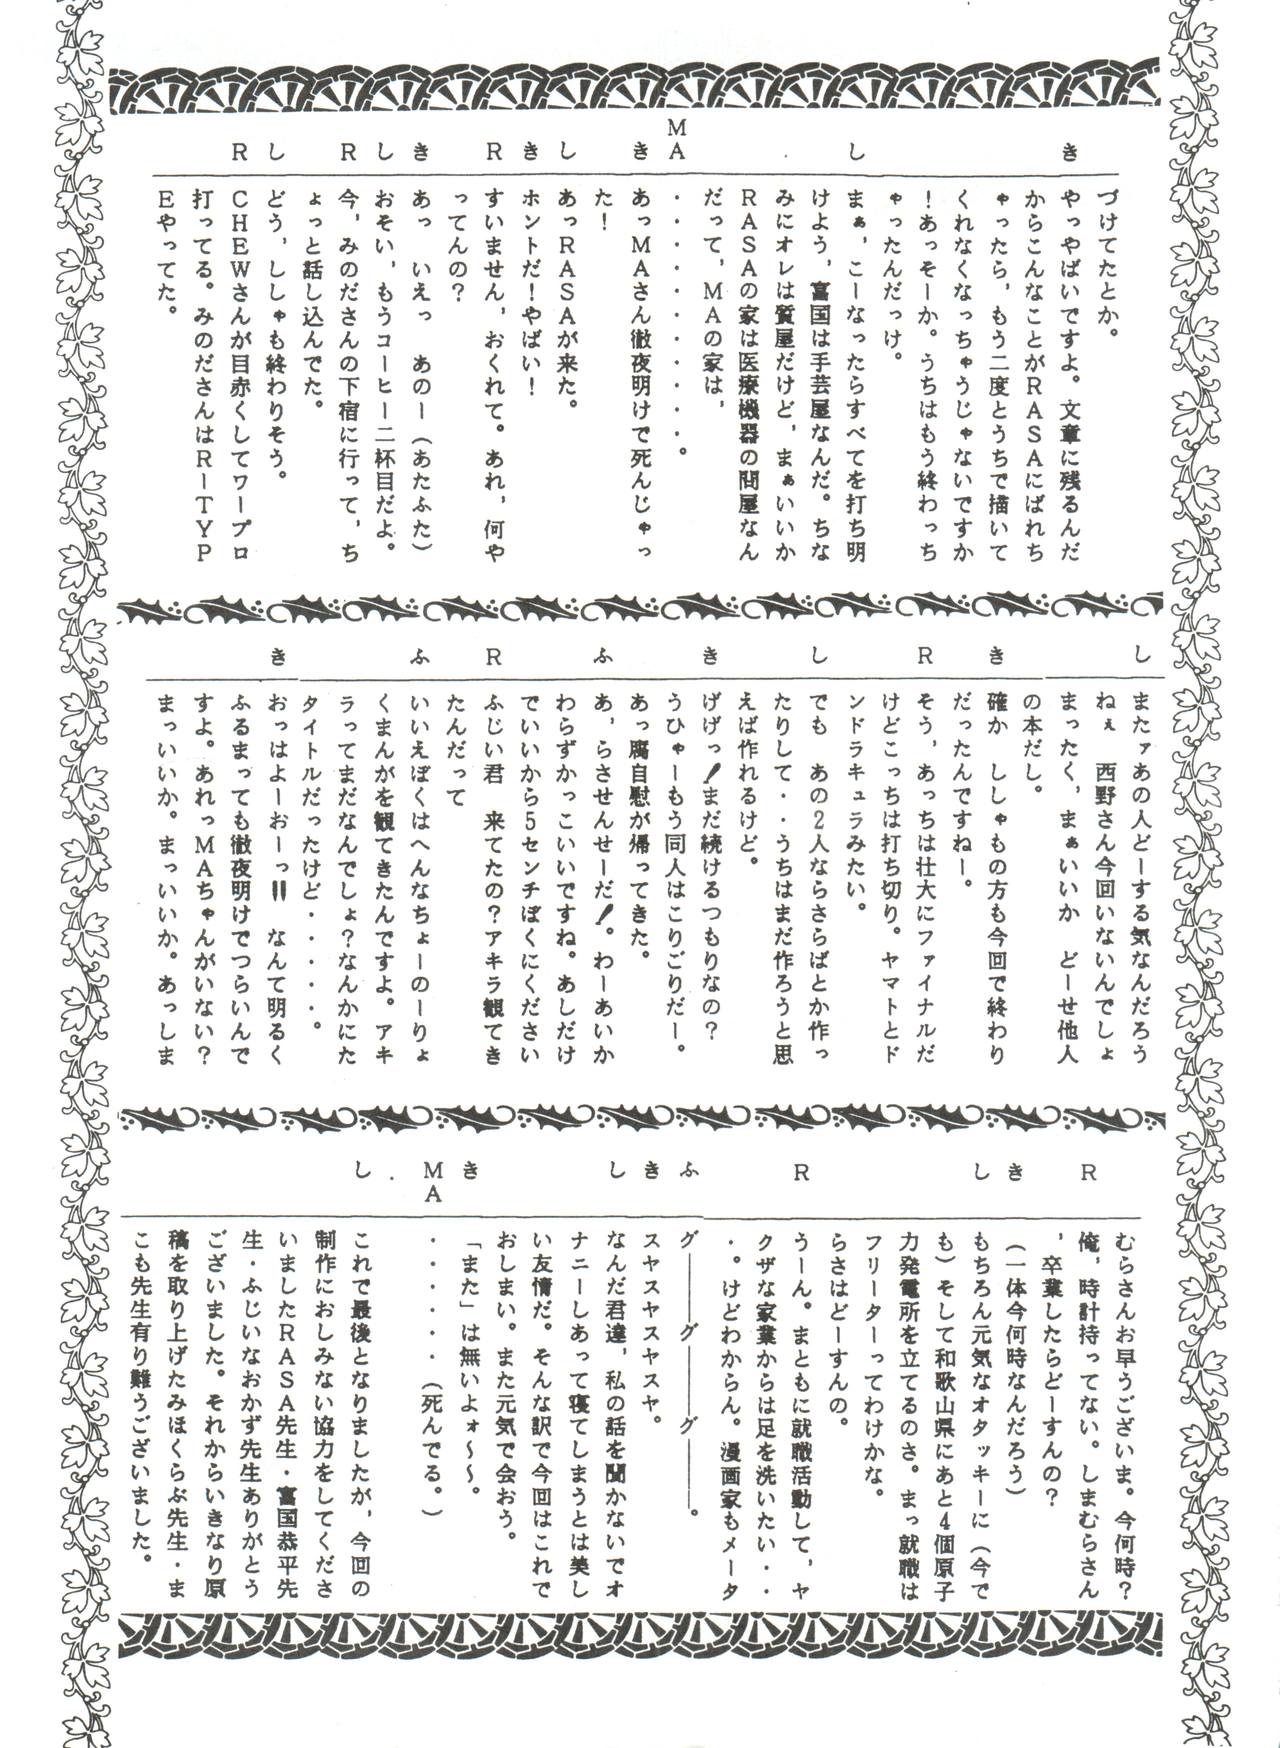 づけてたとか。
き やっやばいですよ。文章に残るんだ
からこんなことがRASAにばれち
ゃったら，もう二度とうちで描いて
くれなくなっちゃうじゃないですか
！あっそーか。うちはもう終わっち
ゃったんだっけ。
し まぁ，こーなったらすべてを打ち明
けよう，富国は手芸屋なんだ。ちな
みにオレは質屋だけど，まぁいいか
RASAの家は医療機器の問屋なん
だって，MAの家は，
MA ・・・・・・・・・・・・。
き あっMAさん徹夜明けで死んじゃっ
た！
し あっRASAが来た。
き ホントだ！やばい！
R すいません，おくれて。あれ，何や
ってんの？
き あっ　いえっ　あのー（あたふた）
し おそい，もうコーヒー二杯目だよ。
R 今，みのださんの下宿に行って，ち
ょっと話し込んでた。
し どう，ししゃも終わりそう。
R CHEWさんが目赤くしてワープロ
打ってる。みのださんはR－TYP
Eやってた。
し またァあの人どーする気なんだろう
ねぇ　西野さん今回いないんでしょ
まったく，まぁいいか　どーせ他人
の本だし。
き 確か　ししゃもの方も今回で終わり
だったんですねー。
R そう，あっちは壮大にファイナルだ
けどこっちは打ち切り。ヤマトとド
ンドラキュラみたい。
し でも　あの2人ならさらばとか作っ
たりして・・うちはまだ作ろうと思
えば作れるけど。
き げげっ！まだ続けるつもりなの？
うひゃーもう同人はこりごりだー。
あっ腐自慰が帰ってきた。
ふ あ，らさせんせーだ！。わーあいか
わらずかっこいいですね。あしだけ
でいいから5センチぼくにください
R ふじい君　来てたの？アキラ観てき
たんだって
ふ いいえぼくはへんなちょーのーりょ
くまんがを観てきたんですよ。アキ
ラってまだなんでしょ？なんかにた
タイトルだったけど・・・・・。
き おっはよーおーっ!!　なんて明るく
ふるまっても徹夜明けでつらいんで
すよ。あれっMAちゃんがいない？
まっいいか。まっいいか。あっしま
むらさんお早うございま。今何時？
R 俺，時計持ってない。しまむらさん
，卒業したらどーすんの？
き （一体今何時なんだろう）
し もちろん元気なオタッキーに（今で
も）そして和歌山県にあと4個原子
力発電所を立てるのさ。まっ就職は
フリーターってわけかな。
らさはどーすんの。
R うーん。まともに就職活動して，ヤ
クザな家業からは足を洗いたい・・
・。けどわからん。漫画家もメータ
ふ グ――――グ――――グ――――。
き スヤスヤスヤスヤ。
し なんだ君達，私の話を聞かないでオ
ナニーしあって寝てしまうとは美し
い友情だ。そんな訳で今回はこれで
おしまい。また元気で会おう。
き 「また」は無いよォ～～。
MA ・・・・・・（死んでる。）
し これで最後となりましたが，今回の
制作におしみない協力をしてくださ
いましたRASA先生・富国恭平先
生・ふじいなおかず先生ありがとう
ございました。それからいきなり原
稿を取り上げたみほくらぶ先生・ま
こも先生有り難うございました。